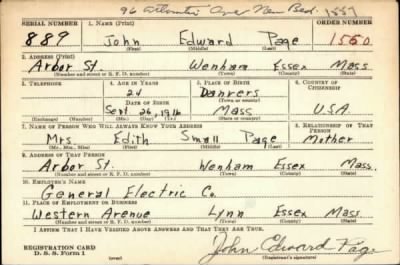 96 Atlantic Ave New Bed.
SERIAL NUMBER 1. NAME (Print) ORDER NUMBER
889 John Edward Page 1560
(First) (Middle) (Last)
2. ADDRESS (Print)
Arbor St. Wenham Essex Mass
(Number and street or R. F. D. number) (Town) (County) (State)
3. TELEPHONE 4. AGE IN YEARS 5. PLACE OF BIRTH 6. COUNTRY OF CITIZENSHIP
24 Danvers
DATE OF BIRTH (Town or county)
Sept 26, 1916 Mass U.S.A.
(Exchange) (Number) (Mo.) (Day) (Yr.) (State or country)
7. NAME OF PERSON WHO WILL ALWAYS KNOW YOUR ADDRESS 8. RELATIONSHIP OF THAT PERSON
Mrs. Edith Small Page Mother
(Mr., Mrs., Miss) (First) (Middle) (Last)
9. ADDRESS OF THAT PERSON
Arbor St. Wenham Essex Mass.
(Number and street or R. F. D. number) (Town) (County) (State)
10. EMPLOYER'S NAME
General Electric Co.
11. PLACE OF EMPLOYMENT OR BUSINESS
Western Avenue Lynn Essex Mass.
(Number and street or R. F. D. number) (Town) (County) (State)
I AFFIRM THAT I HAVE VERIFIED ABOVE ANSWERS AND THAT THEY ARE TRUE.
REGISTRATION CARD
D. S. S. Form 1 (over) John Edward Page
(Registrant's signature)